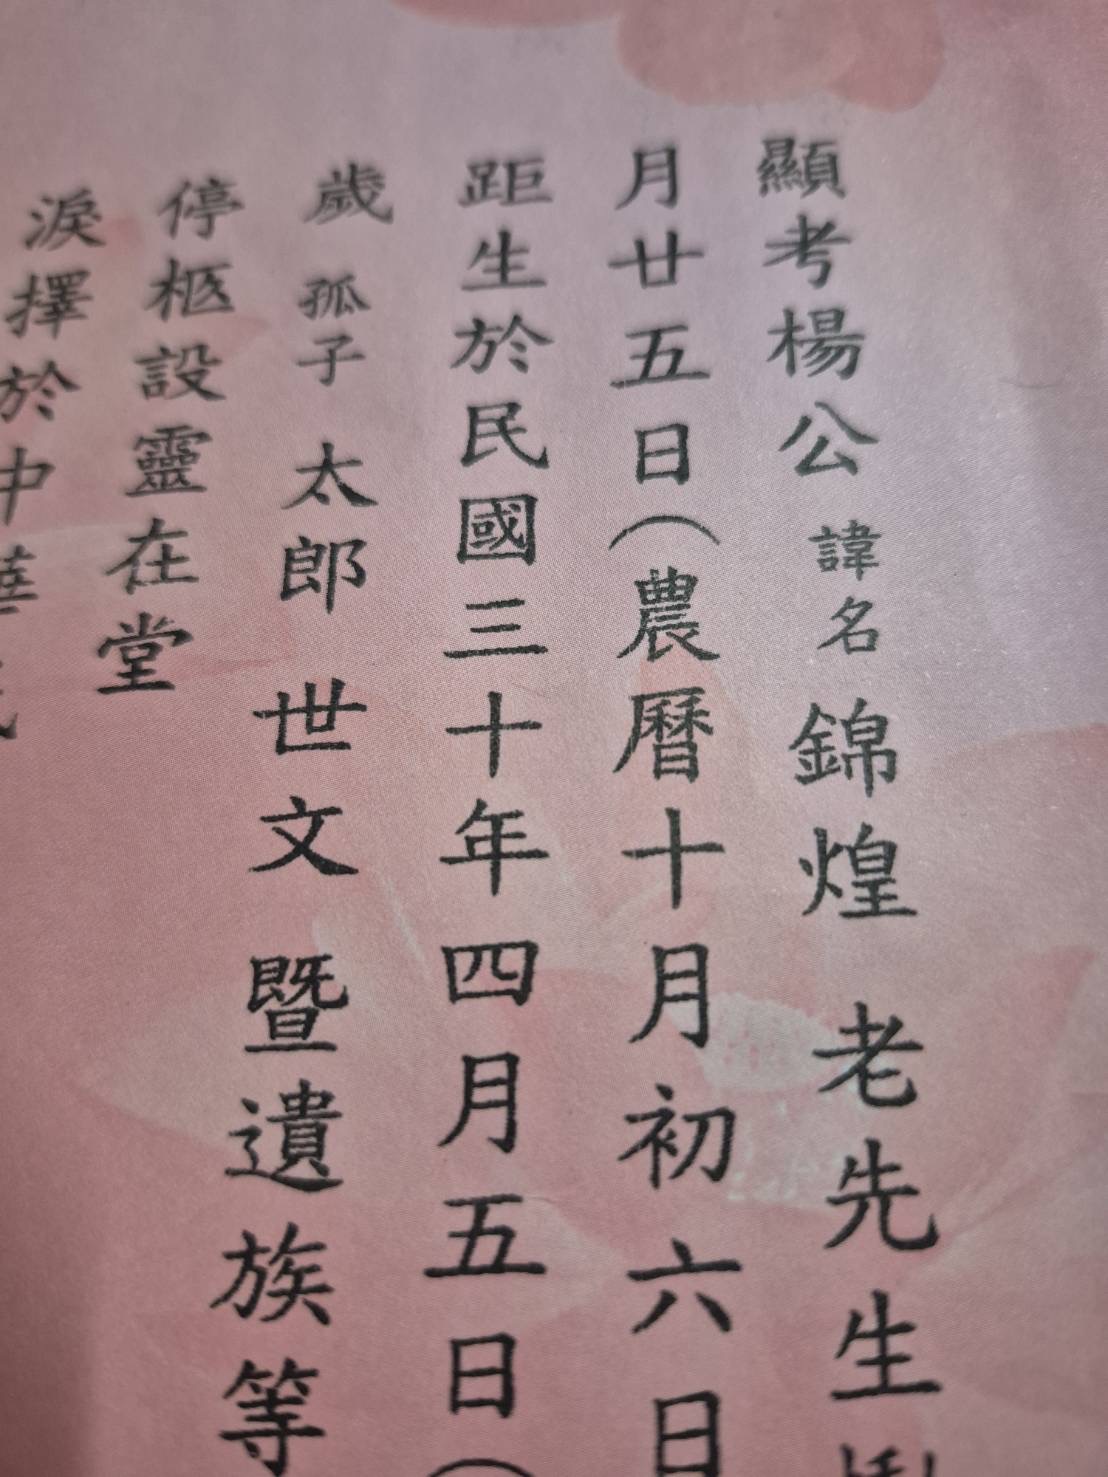 顯考楊公諱名錦煌老先生
月廿五日(農曆十月初六日
距生於民國三十年四月五日(
歲孤子太郎世文暨遺族等
停柩設靈在堂
淚擇於中華